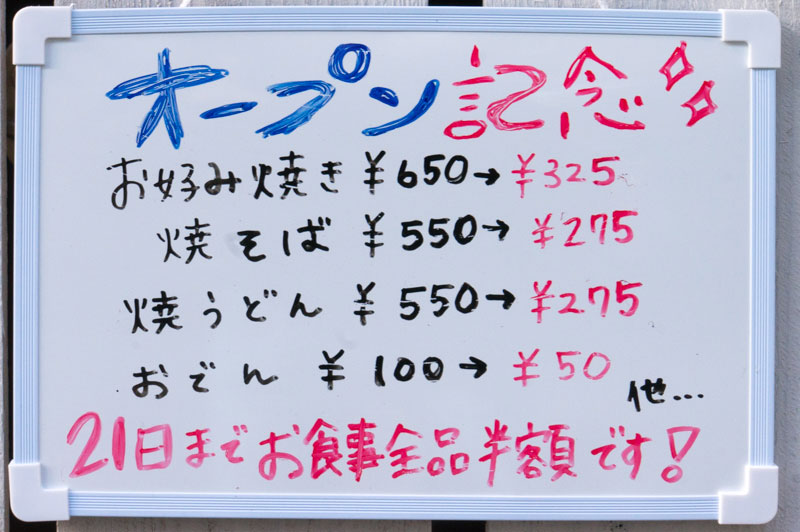 オープン記念
お好み焼き ¥650→¥325
焼そば ¥550→¥275
焼うどん ¥550→¥275
おでん ¥100→¥50
他…
21日までお食事全品半額です!